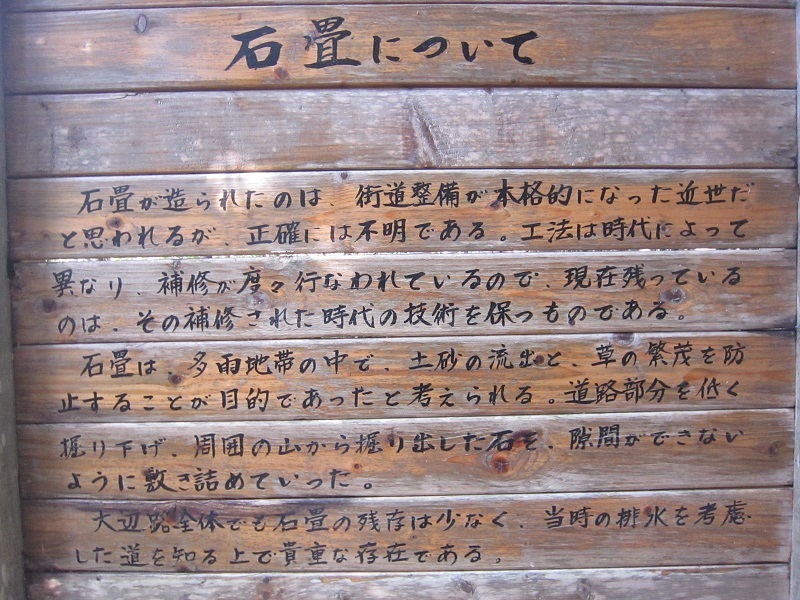 石畳について
石畳が造られたのは、街道整備が本格的になった近世だ
と思われるが、正確には不明である。工法は時代によって
異なり、補修が度々行なわれているので、現在残っている
のは、その補修された時代の技術を保つものである。
石畳は、多雨地帯の中で、土砂の流出と、草の繁茂を防
止することが目的であったと考えられる。道路部分を低く
掘り下げ、周囲の山から掘り出した石を、隙間ができない
ように敷き詰めていった。
大辺路全体でも石畳の残存は少なく、当時の排水を考慮
した道を知る上で貴重な存在である。